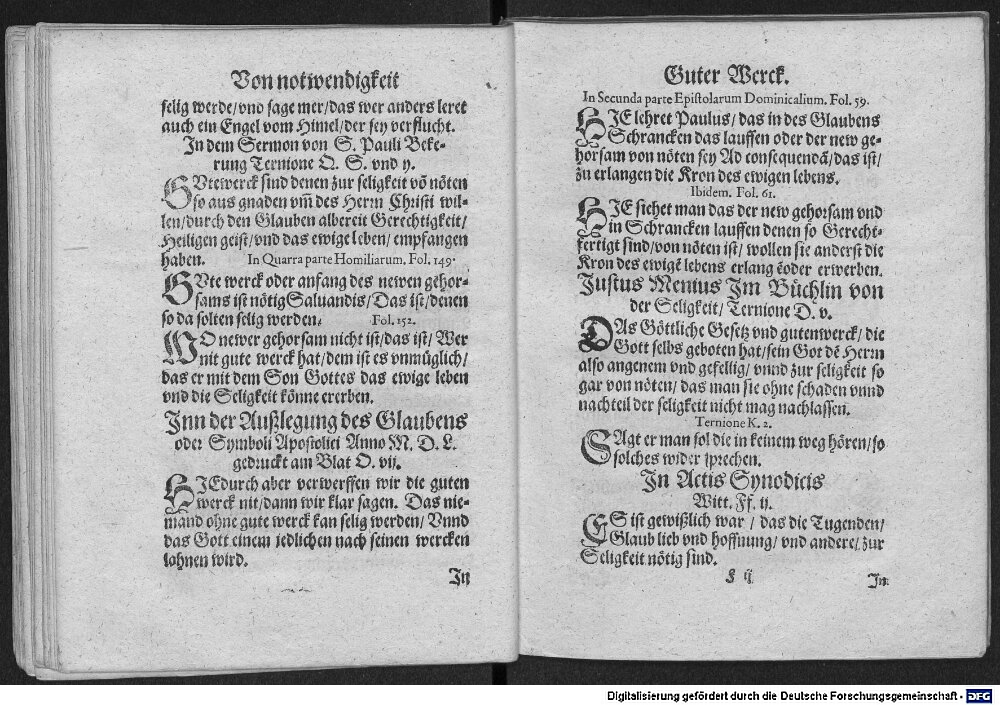 Von notwendigkeit
selig werde/vnd sage mer/das wer anders leret
auch ein Engel vom Himel/der sey verflucht.
In dem Sermon von S. Pauli Beke-
rung Ternione Q. S. vnd y.
GVtewerck sind denen zur seligkeit võ nöten
so aus gnaden vm̃ des Herrn Christi wil-
len/durch den Glauben albereit Gerechtigkeit/
Heiligen geist/vnd das ewige leben/empfangen
haben. In Quarra parte Homiliarum. Fol. 149.
GVte werck oder anfang des newen gehor-
sams ist nötig Saluandis/Das ist/denen
so da solten selig werden. Fol. 152.
WO newer gehorsam nicht ist/das ist/Wer
nit gute werck hat/dem ist es vnmüglich/
das er mit dem Son Gottes das ewige leben
vnd die Seligkeit könne ererben.
Inn der Außlegung des Glaubens
oder Symboli Apostolici Anno M. D. L.
gedruckt am Blat O. vij.
HIEdurch aber verwerffen wir die guten
werck nit/dann wir klar sagen. Das nie-
mand ohne gute werck kan selig werden/Vnnd
das Gott einem jedlichen nach seinen wercken
lohnen wird.
In
Guter Werck.
In Secunda parte Epistolarum Dominicalium. Fol. 59.
HIE lehret Paulus/das in des Glaubens
Schrancken das lauffen oder der new ge-
horsam von nöten sey Ad consequendã/das ist/
zu erlangen die Kron des ewigen lebens.
Ibidem. Fol. 61.
HIE siehet man das der new gehorsam vnd
in Schrancken lauffen denen so Gerecht-
fertigt sind/von nöten ist/wollen sie anderst die
Kron des ewigẽ lebens erlang ẽoder erwerben.
Justus Menius Im Büchlin von
der Seligkeit/Ternione D. v.
DAs Göttliche Gesetz vnd gutenwerck/die
Gott selbs geboten hat/sein Got dẽ Herrn
also angenem vnd gefellig/vnnd zur seligkeit so
gar von nöten/das man sie ohne schaden vnnd
nachteil der seligkeit nicht mag nachlassen.
Ternione K. 2.
SAgt er man sol die in keinem weg hören/so
solches wider sprechen.
In Actis Synodicis
Witt. Ff. ij.
ES ist gewißlich war/das die Tugenden/
Glaub lieb vnd hoffnung/vnd andere/zur
Seligkeit nötig sind.
F ij
In
Digitalisierung gefördert durch die Deutsche Forschungsgemeinschaft - DFG